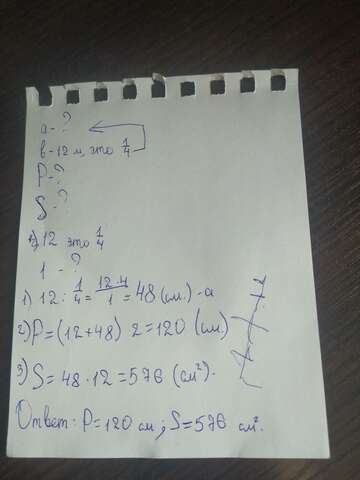 а - ?
в - 12 м, это 1/4
P - ?
S - ?
12 это 1/4
1 - ?
1) 12 : 1/4 = 12·4/1 = 48 (см.) - а
2) P = (12 + 48) 2 = 120 (см)
3) S = 48 · 12 = 576 (см²).
Ответ: P = 120 см ; S = 576 см².